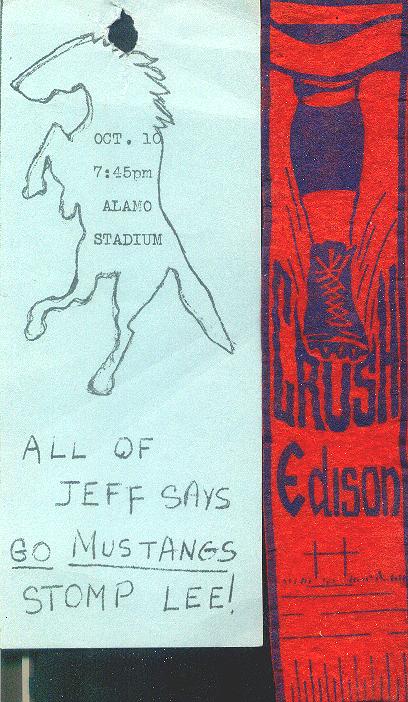 OCT. 10
7:45pm
ALAMO
STADIUM
ALL OF
JEFF SAYS
GO MUSTANGS
STOMP LEE!
CRUSH
Edison